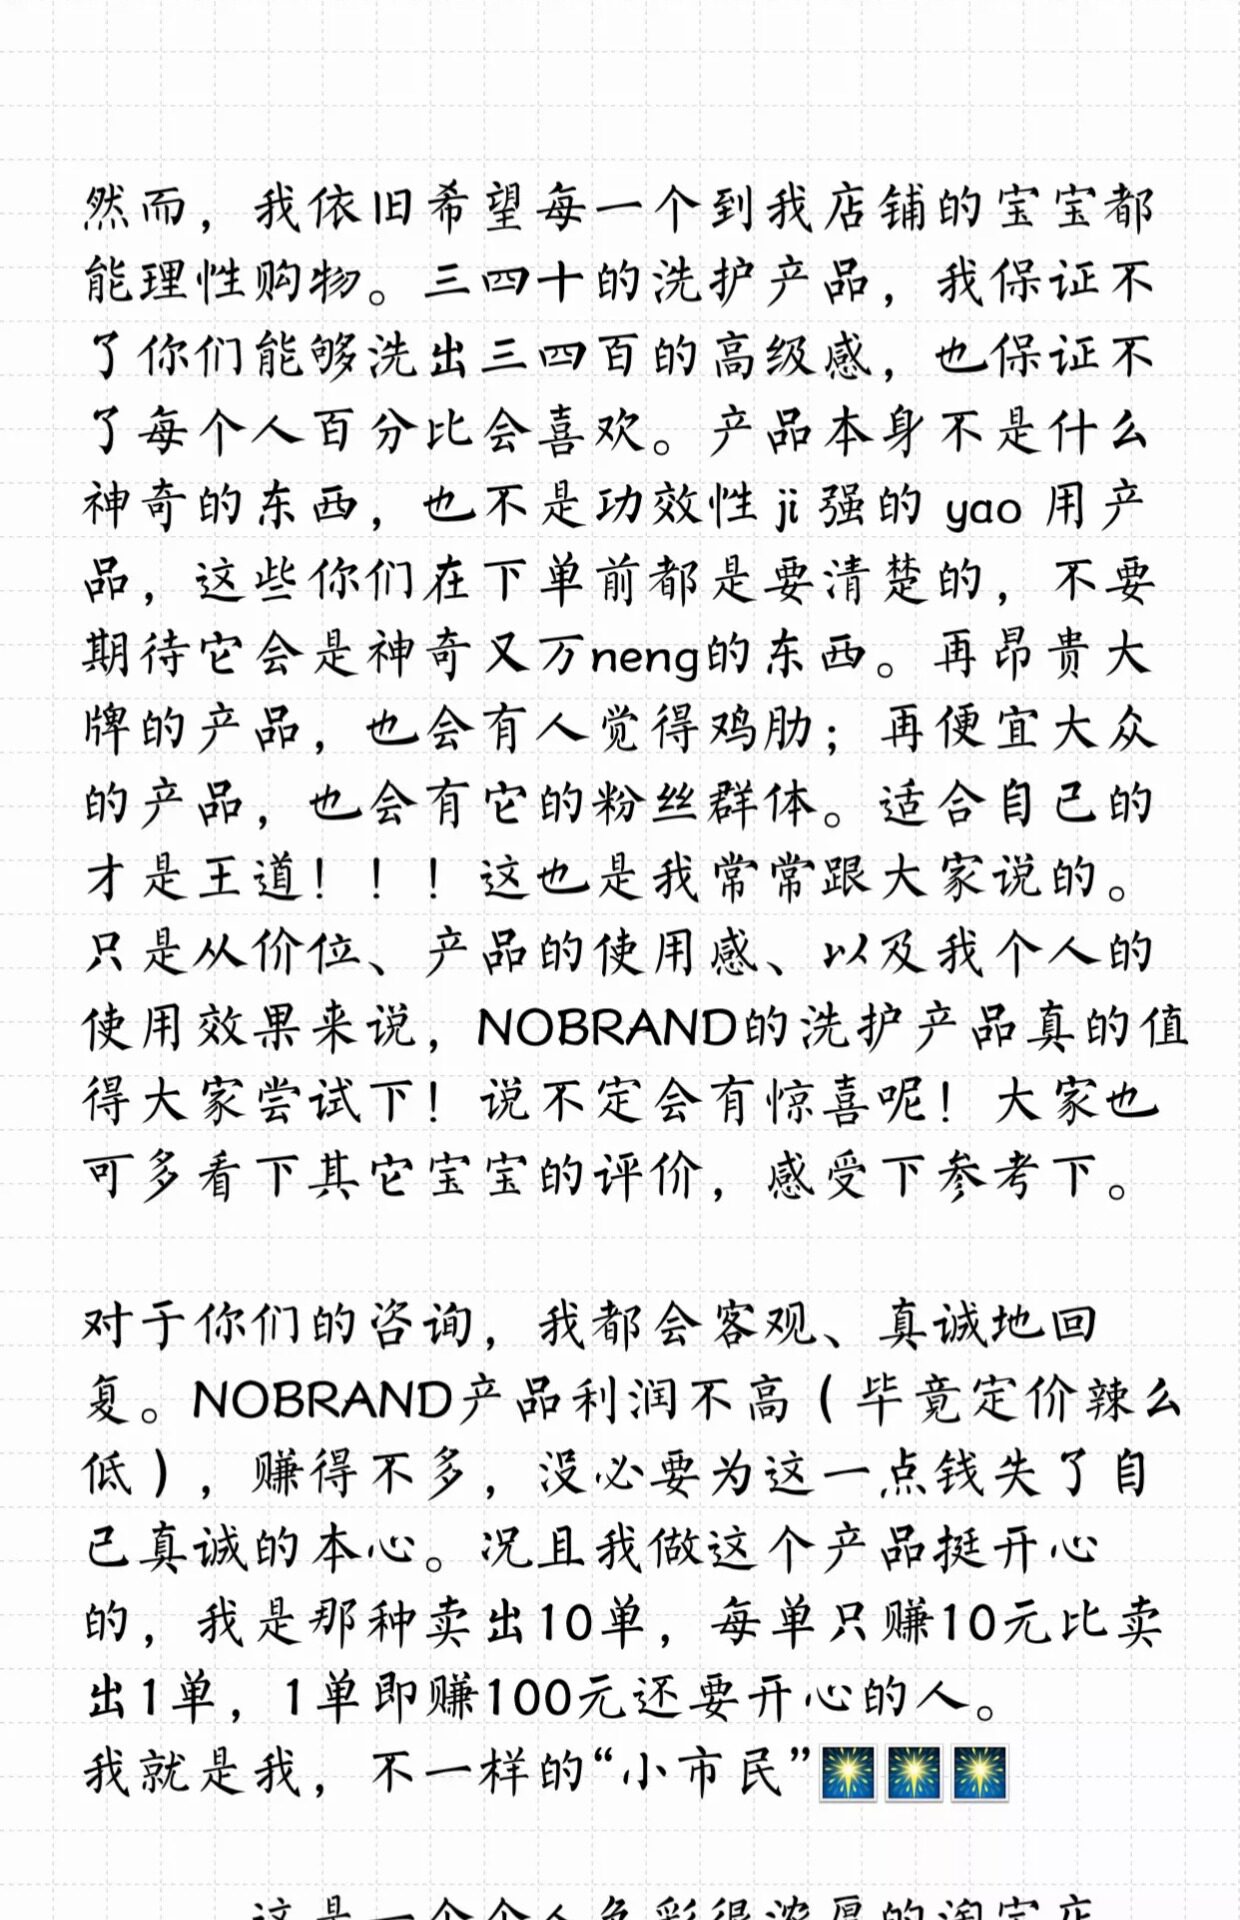 然而，我依旧希望每一个到我店铺的宝宝都
能理性购物。三四十的洗护产品，我保证不
了你们能够洗出三四百的高级感，也保证不
了每个人百分比会喜欢。产品本身不是什么
神奇的东西，也不是功效性ji强的 yao 用产
品，这些你们在下单前都是要清楚的，不要
期待它会是神奇又万neng的东西。再昂贵大
牌的产品，也会有人觉得鸡肋；再便宜大众
的产品，也会有它的粉丝群体。适合自己的
才是王道！！！这也是我常常跟大家说的。
只是从价位、产品的使用感、以及我个人的
使用效果来说，NOBRAND的洗护产品真的值
得大家尝试下！说不定会有惊喜呢！大家也
可多看下其它宝宝的评价，感受下参考下。
对于你们的咨询，我都会客观、真诚地回
复。NOBRAND产品利润不高（毕竟定价辣么
低），赚得不多，没必要为这一点钱失了自
己真诚的本心。况且我做这个产品挺开心
的，我是那种卖出10单，每单只赚10元比卖
出1单，1单即赚100元还要开心的人。
我就是我，不一样的“小市民”🎇🎇🎇
这是一个个人色彩很浓厚的淘宝店